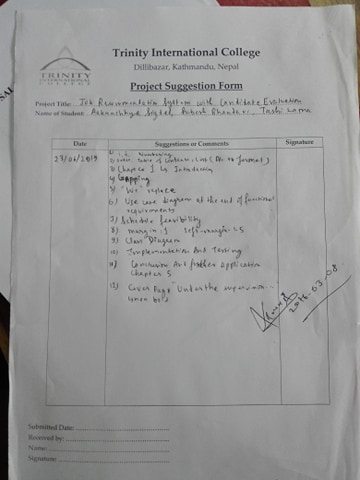 Trinity International College
Dillibazar, Kathmandu, Nepal
TRINITY
INTERNATIONAL
COLLEGE
Project Suggestion Form
Project Title: Job Recommendation System with Candidate Evaluation
Name of Student: Bhandari, Tashi Lama
Date Suggestions or Comments Signature
23/06/2019
1) Numbering
2) Table of contents, List
3) Chapter 1 is Introduction
4) Gapping
5) "We" replace
6) Use case diagram at the end of functional
requirements
7) Schedule feasibility
8) margin: 1 left margin 1.5
9) Class Diagram
10) Implementation And Testing
11) Conclusion And further application
Chapter 5
12) Cover Page "Under the supervision
2076.03.08
Submitted Date:
Reviewed by:
Name:
Signature: